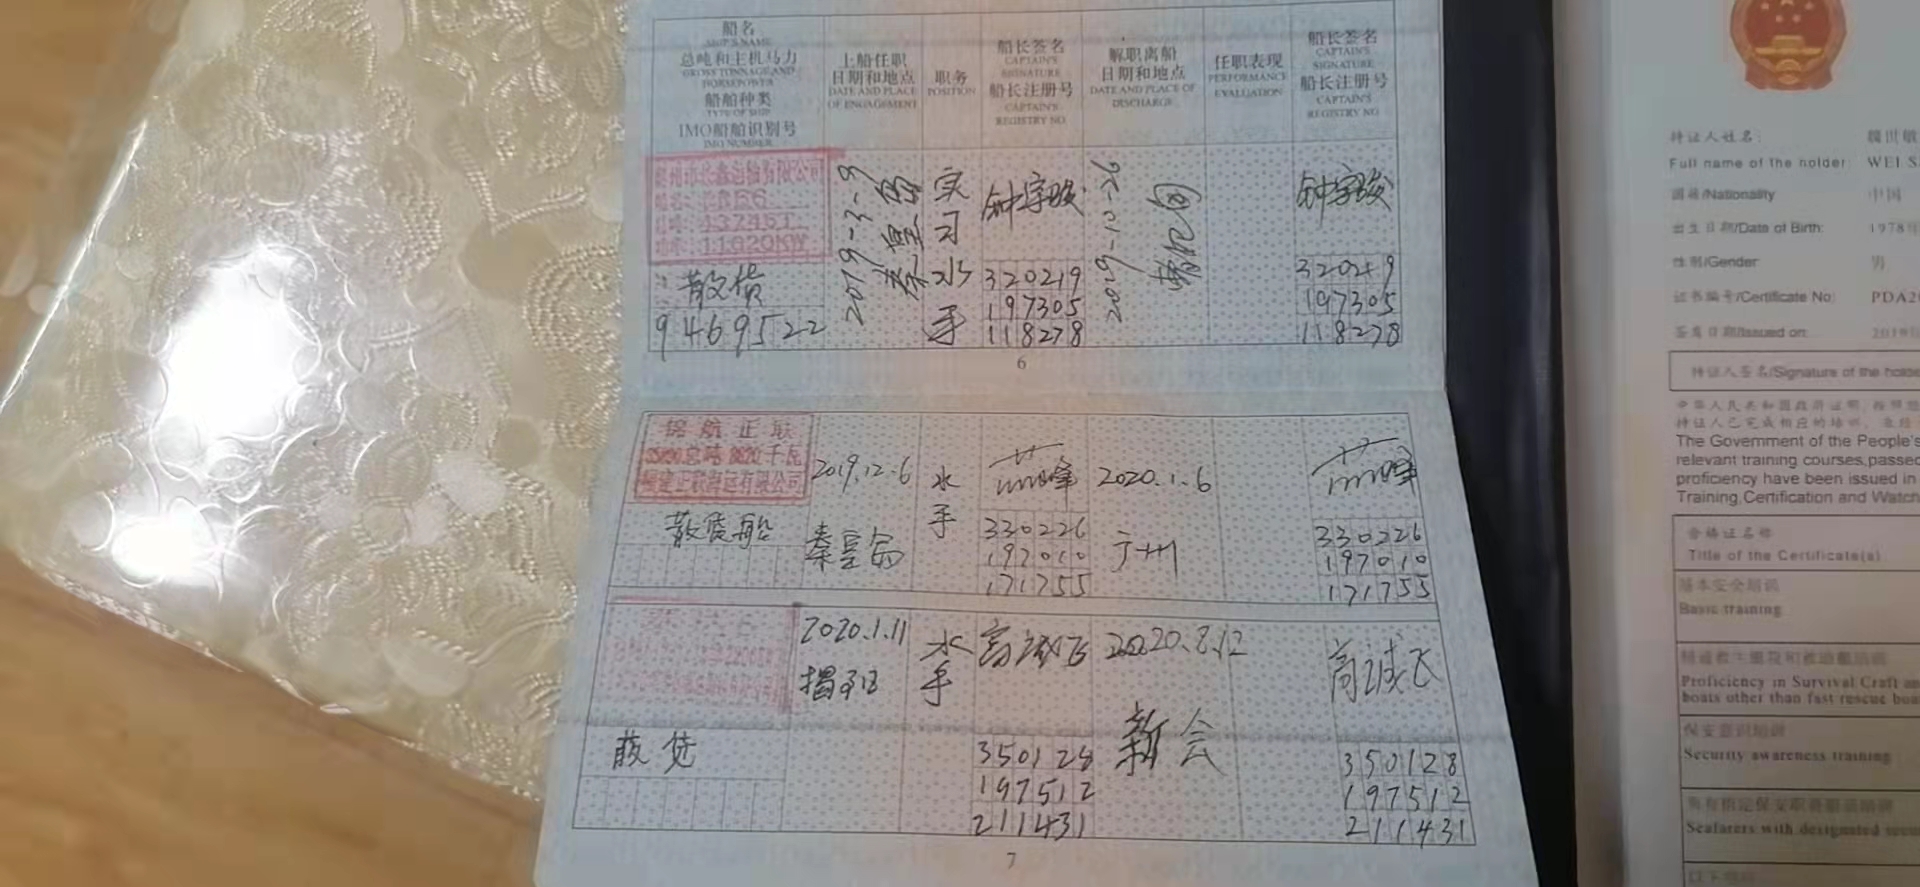 船名
SHIP'S NAME
总吨和主机马力
GROSS TONNAGE AND
HORSEPOWER
船舶种类
TYPE OF SHIP
IMO船舶识别号
IMO NUMBER
上船任职
日期和地点
DATE AND PLACE
OF ENGAGEMENT
职务
POSITION
船长签名
CAPTAIN'S
SIGNATURE
船长注册号
CAPTAIN'S
REGISTRY NO
解职离船
日期和地点
DATE AND PLACE OF
DISCHARGE
任职表现
PERFORMANCE
EVALUATION
船长签名
CAPTAIN'S
SIGNATURE
船长注册号
CAPTAIN'S
REGISTRY NO
11020KW
散货
9469522
2019-3-9
秦皇岛
实习水手
钟宇骏
320219
197305
118278
钟宇骏
320219
197305
118278
6
锦航正联
福建正联海运有限公司
散货船
2019.12.6
秦皇岛
水手
330226
197010
171755
2020.1.6
广州
330226
197010
171755
2020.1.11
揭阳
水手
高诚飞
2020.8.12
新会
高诚飞
散货
350128
197512
211431
350128
197512
211431
7
持证人姓名:
魏世敏
Full name of the holder:
WEI S
国籍/Nationality
中国
出生日期/Date of Birth:
1978年
性别/Gender
男
证书编号/Certificate No:
PDA2
签发日期/Issued on:
2019
持证人签名/Signature of the holde
The Government of the People's
relevant training courses,passed
proficiency have been issued in
Training,Certification and Watch
合格证名称
Title of the Certificate(s)
基本安全培训
Basic training
Proficiency in Survival Craft an
boats other than fast rescue boa
保安意识培训
Security awareness training
Seafarers with designated secu
以下空白